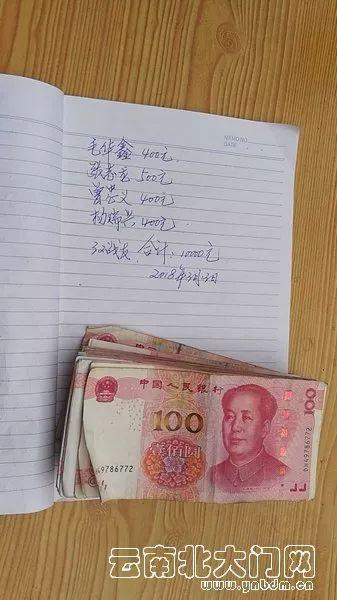 MEMO NO.
DATE
毛华鑫 400元
500元
曾芒义 400元
杨瑞兴 400元
战友 合计：10000元
2018年3月3日
中国人民银行
100
100
壹佰圆
DH49786772
49786772
云南北大门网
www.ynbdm.cn